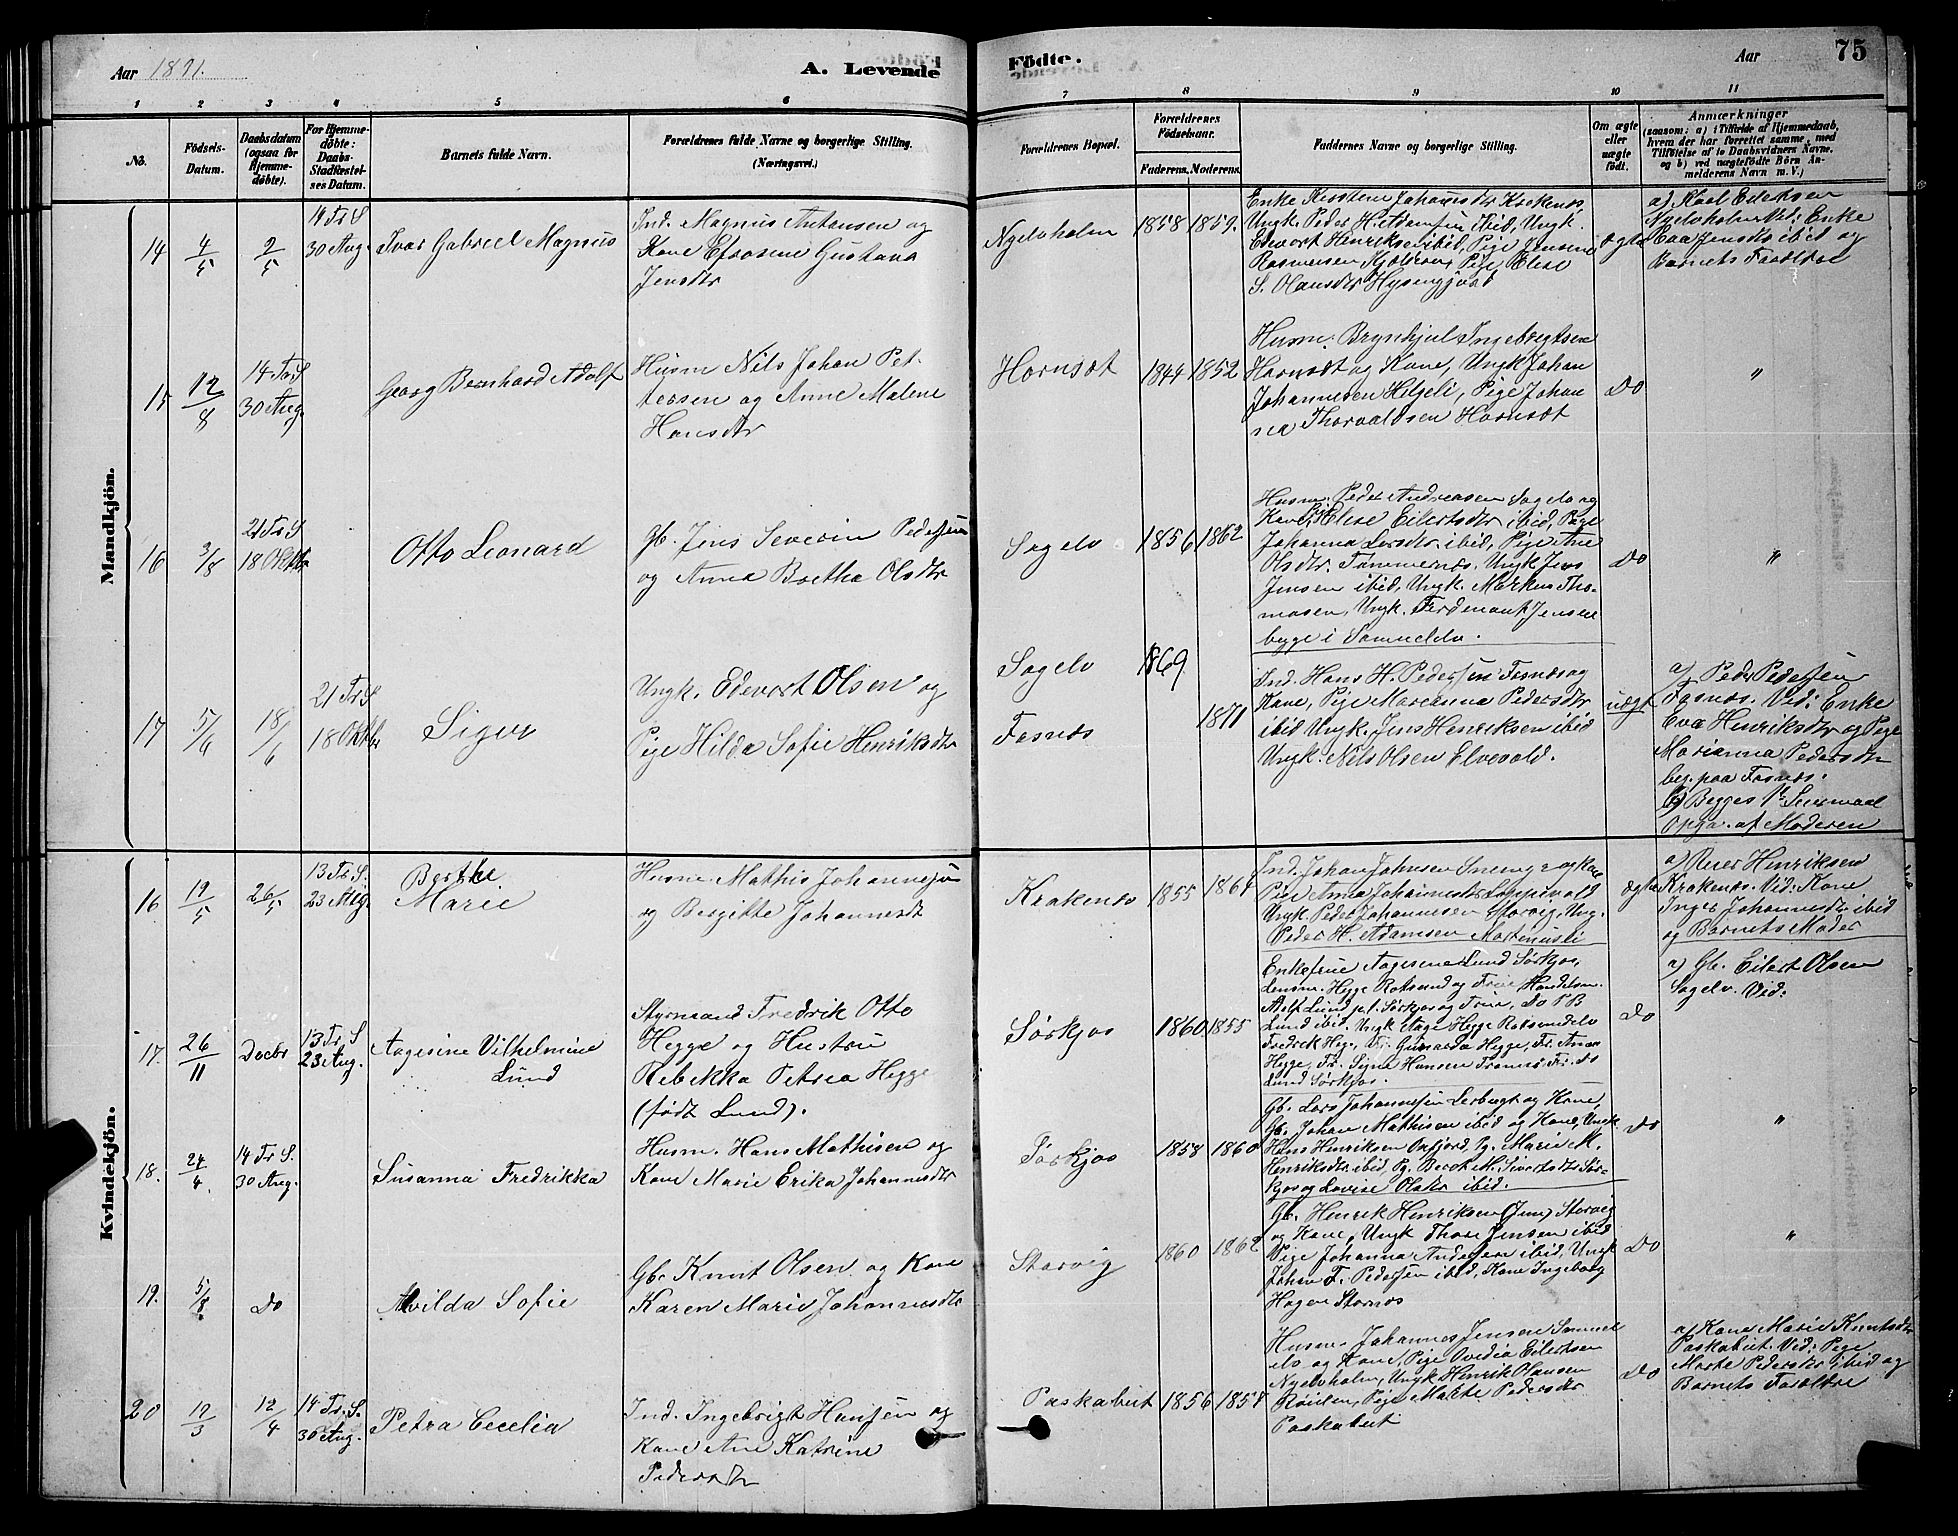 Aar 1891.
A. Levende
Födte.
Aar
75
1
2
3
4
5
6
7
8
9
10
11
No.
Födsels-
Datum.
Daabsdatum
(ogsaa for
Hjemme-
döbte).
For Hjemme-
döbte:
Daabs-
Stadfæstel-
ses Datum.
Barnets fulde Navn.
Forældrenes fulde Navne og borgerlige Stilling.
(Næringsvei.)
Forældrenes Bopæl.
Forældrenes
Födselsaar.
Faderens. Moderens.
Faddernes Navne og borgerlige Stilling.
Om ægte
eller
uægte
födt.
Anmærkninger
(saasom: a) i Tilfælde af Hjemmedaab,
hvem der har forrettet samme, med
Tilföielse af to Daabsvidners Navne,
og b) ved uægtefödte Börn An-
melderens Navn m. V.)
Mandkjön.
14
4/5
2/5
30 Aug.
Ivar Gabriel Magnus
Ind. Magnus Antonsen og
Kone Efrosene Gustava
Jensdtr
Nyelvholm
1858
1859.
Enke Kirstine Johannsdtr Krokenæs,
Ungk. Peder H. Adamsen ibid, Ungk.
Edevart Henriksen ibid, Pige Jensine
Rasmussen, Pige Elise
S. Olausdtr
ægte
a) Karl Eilertsen
Nyelvholm Vid: Enke
Eva Jensdtr ibid og
Barnets Forældre
15
12/8
14 Tr. S
30 Aug.
Georg Bernhard Adolf
Husm Nils Johan Pet-
tersen og Anne Malene
Hansdtr
Hornsæt
1844
1852
Husm. Brynhjul Ingebrigtsen
Hornsæt og Kone, Ungk Johan
Johannesen, Pige Johan
na Thorvaldsen Hornsæt
Do
"
16
3/8
21 Tr. S
18 Oktbr
Otto Leonard
Gb. Jens Severin Pedersen
og Anna Bertha Olsdtr
Sagelv
1856
1862
Husm. Peder Andreasen Sagelv og
Kone, Elise Eilertsdtr ibid, Pige
Johanna Larsdtr. ibid, Pige Ane
Olsdtr. Tømmernæs, Ungk Jens
Jensen ibid, Ungk. Markus Tho-
masen, Ungk. Ferdinant Jensen
begge i Samuelelv.
Do
"
17
5/4
18/6
21 Tr. S
18 Oktbr
Sigur
Ungk. Edevart Olsen og
Pige Hilda Sofie Henriksdtr
Sagelv
Fosnæs
1869
1871
Ind. Hans H. Pedersen Fosnæs og
Kone, Pige Marianna Pedersdtr
ibid Ungk. Jens Henriksen ibid
Ungk. Nils Olsen Elvevold.
uægt
a) Peder Pedersen
Fosnæs. Vid: Enke
Eva Henriksdtr og Pige
Marianna Pedersdtr
beg. paa Fosnæs.
b) Begges 1ste Leiermaal
Opga. af Moderen
Kvindekjön.
16
19/5
26/5
13 Tr. S.
23 Aug.
Berthe
Marie
Husm. Mathis Johannesen
og Bergitte Johannesdt
Krakenæs
1855
1864
Ind. Johan Johnsen og Kone
Pige Anna Johannesdtr Loppevold
Ungk. Peder Johannesen Storvig, Ung.
Peder H. Adamsen
ægte
a) Reier Henriksen
Krakenæs. Vid: Kone
Inger Johannesdtr ibid
og Barnets Moder
17.
26/11
Decbr
13 Tr. S
23 Aug.
Aagesine Vilhelmine
Lund
Styrmand Fredrik Otto
Hegge og Hustru
Rebekka Petrea Hegge
(født Lund).
Sørkjos
1860
1855
Enkefrue Aagesene Lund Sørkjos,
Lensm. Hegge Rotsund og Frue, Handelsm.
Adolf Lund jr. Sørkjos og Frue, Do P B
Lund ibid. Ungk Aage Hegge Rotsundelv
Fredrik Heg., Fr. Gunelda Hegge, Fr. Anna
Hegge, Fr. Signe Hansen Tromsø, Fr. do
Lund Sørkjos.
Do
a) Gb. Eilert Olsen
Sagelv. Vid:
18.
24/4
14 Tr. S.
30 Aug.
Susanna Fredrikka
Husm. Hans Mathisen og
Kone Marie Erika Johannesdtr
Sørkjos
1858
1860
Gb. Lars Johannesen og Kone,
Gb. Johan Mathisen ibid og Kone, Ungk
Hans Henriksen Oxfjord, Pg. Marie M.
Henriksdtr ibid, Pg. Beret M. Sivertsdtr Sør-
kjos og Lovise Olsdtr ibid.
Do
"
19.
5/8
Do
Alvilda Sofie
Gb. Knut Olsen og Kone
Karen Marie Johannesdtr
Storvig
1860
1862
Gb. Henrik Henriksen (Jun.) Storvig
og Kone, Ungk Thore Jensen ibid
Pige Johanna Andersen ibid, Ungk
Johan F. Pedersen ibid, Kone Ingeborg
Hagen Stornæs
Do
"
20
12/3
12/4
14 Tr. S.
30 Aug.
Petra Cecelia
Ind. Ingebrigt Hansen og
Kone Ane Katrine
Pedersdtr
Paskabut
1856
1858
Husm. Johannes Jensen Samuel
elv og Kone, Pige Ovedia Eilertsen
Nyelvholm, Ungk Henrik Olausen
Røielen, Pige Marte Pedersdtr
Paskabut
Do
a) Kone Marie Knutsdtr
Paskabut. Vid: Pige
Marte Pedersdtr ibid og
Barnets Forældre